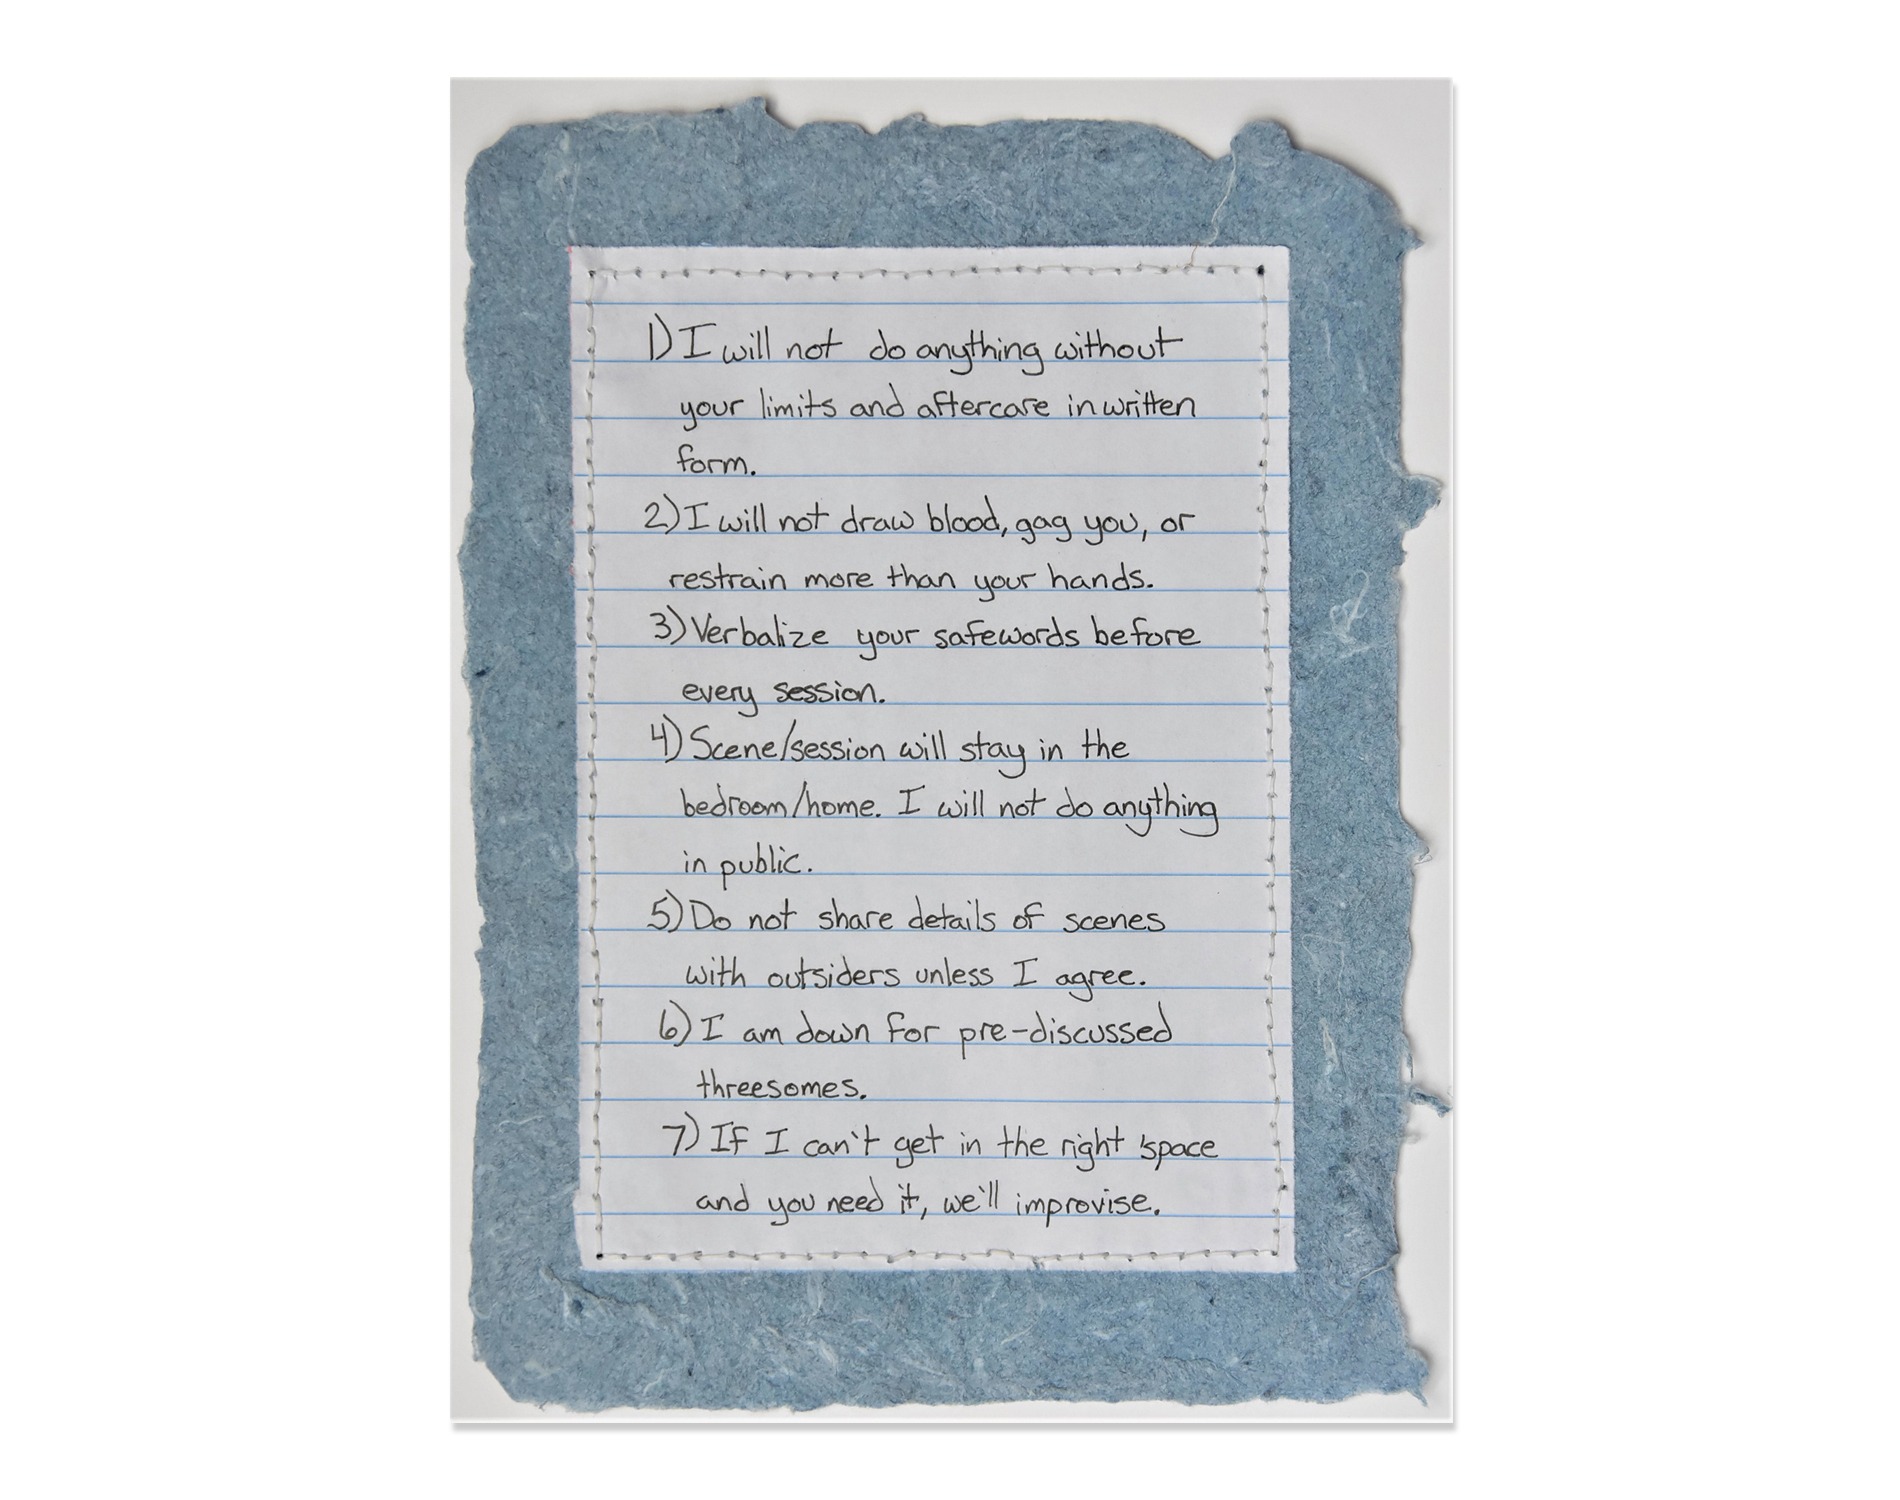 1) I will not do anything without
your limits and aftercare in written
form.
2) I will not draw blood, gag you, or
restrain more than your hands.
3) Verbalize your safewords before
every session.
4) Scene/session will stay in the
bedroom/home. I will not do anything
in public.
5) Do not share details of scenes
with outsiders unless I agree.
6) I am down for pre-discussed
threesomes.
7) If I can't get in the right space
and you need it, we'll improvise.